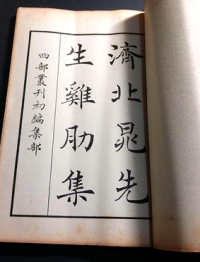 濟北晁先
生雞肋集
四部叢刊初編集部